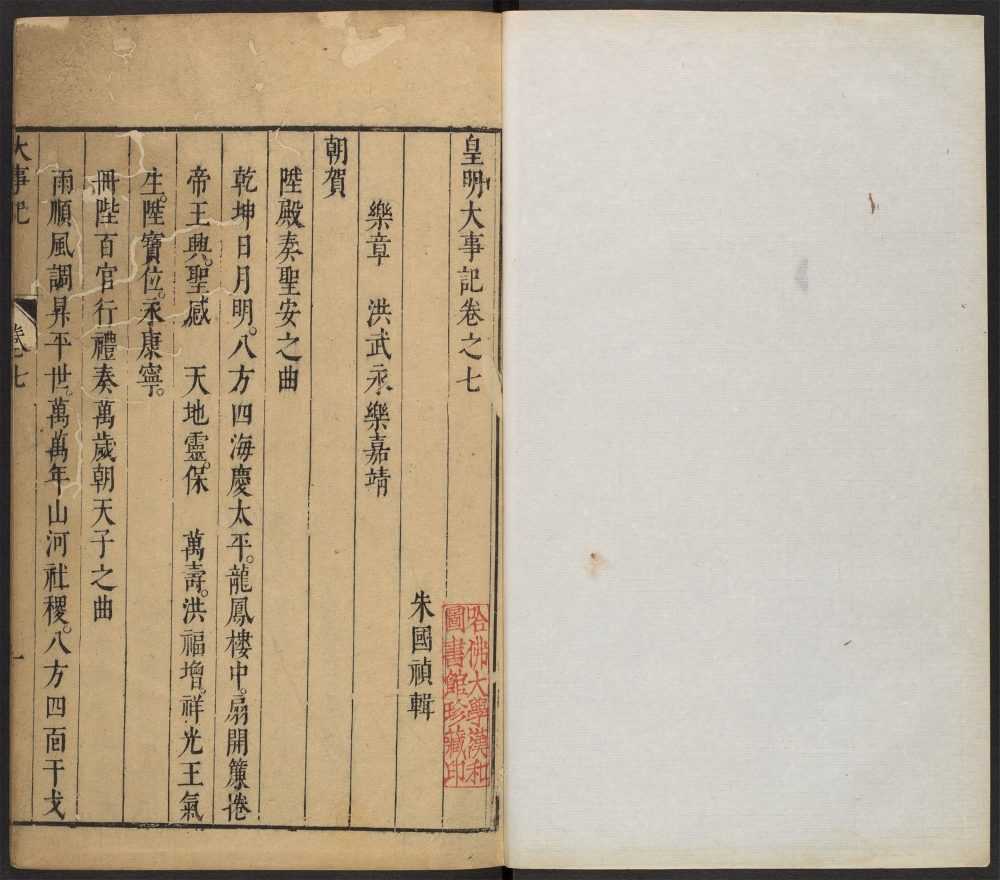 皇明大事記卷之七
朱國禎輯
樂章　洪武永樂嘉靖
朝賀
陞殿奏聖安之曲
乾坤日月明。八方四海慶太平。龍鳳樓中。扇開簾捲
帝王興。聖感　天地靈。保　萬壽。洪福增。祥光王氣
生。陞寶位。永康寧。
冊陛百官行禮奏萬歲朝天子之曲
雨順風調昇平世。萬萬年山河社稷。八方四面干戈
大事記
卷七
一
哈佛大學漢和
圖書館珍藏印